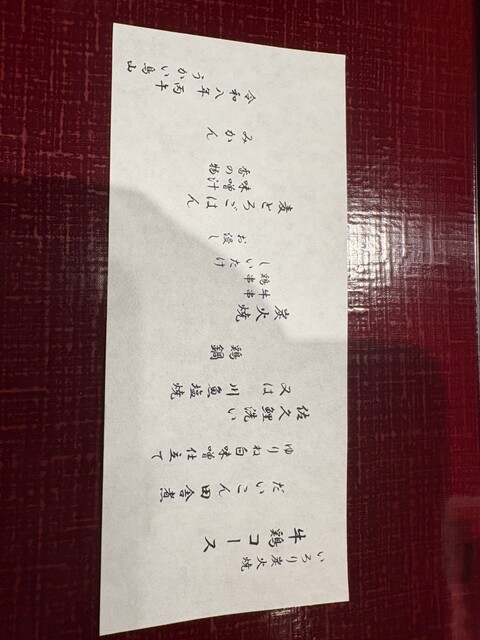 いろり炭火焼
牛鶏コース
だいこん田舎煮
ゆりね白味噌仕立て
佐久鯉洗い
又は 川魚塩焼
鶏鍋
炭火焼
牛串
鶏串
しいたけ
お浸し
麦とろごはん
味噌汁
香の物
みかん
令和八年丙午
うかい鳥山